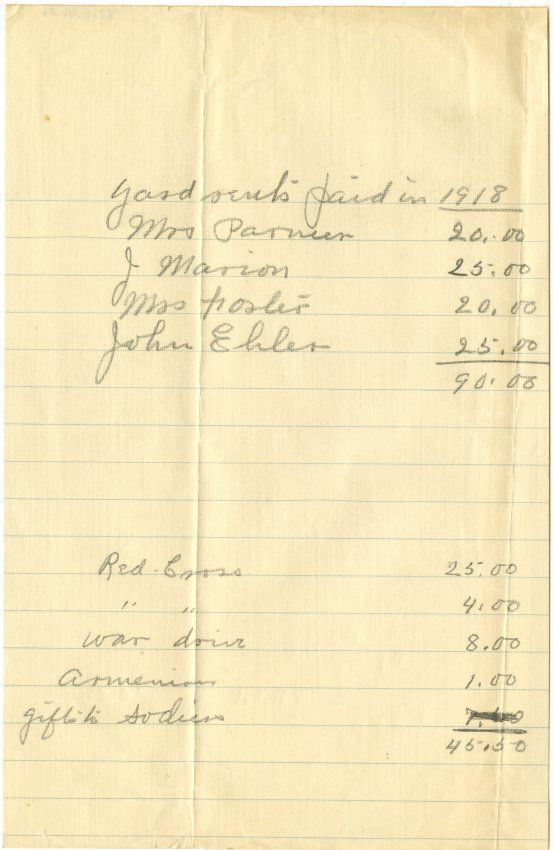 Yard rents paid in 1918
Mrs Parmer 20.00
J Marion 25.00
Mrs Foster 20.00
John Ehler 25.00
90.00
Red Cross 25.00
" " 4.00
war drive 8.00
Armenians 1.00
gifts to Sodiers
45.50